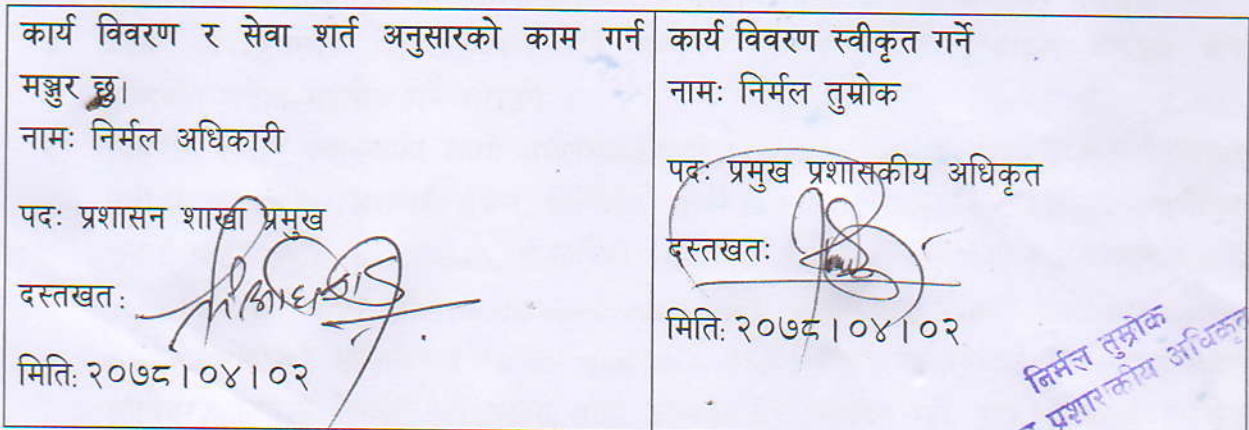 कार्य विवरण र सेवा शर्त अनुसारको काम गर्न
मञ्जुर छु।
नामः निर्मल अधिकारी
पदः प्रशासन शाखा प्रमुख
दस्तखतः
मितिः २०७८।०४।०२
कार्य विवरण स्वीकृत गर्ने
नामः निर्मल तुम्रोक
पदः प्रमुख प्रशासकीय अधिकृत
दस्तखतः
मितिः २०७८।०४।०२
निर्मल तुम्रोक
प्रशासकीय अधिकृत